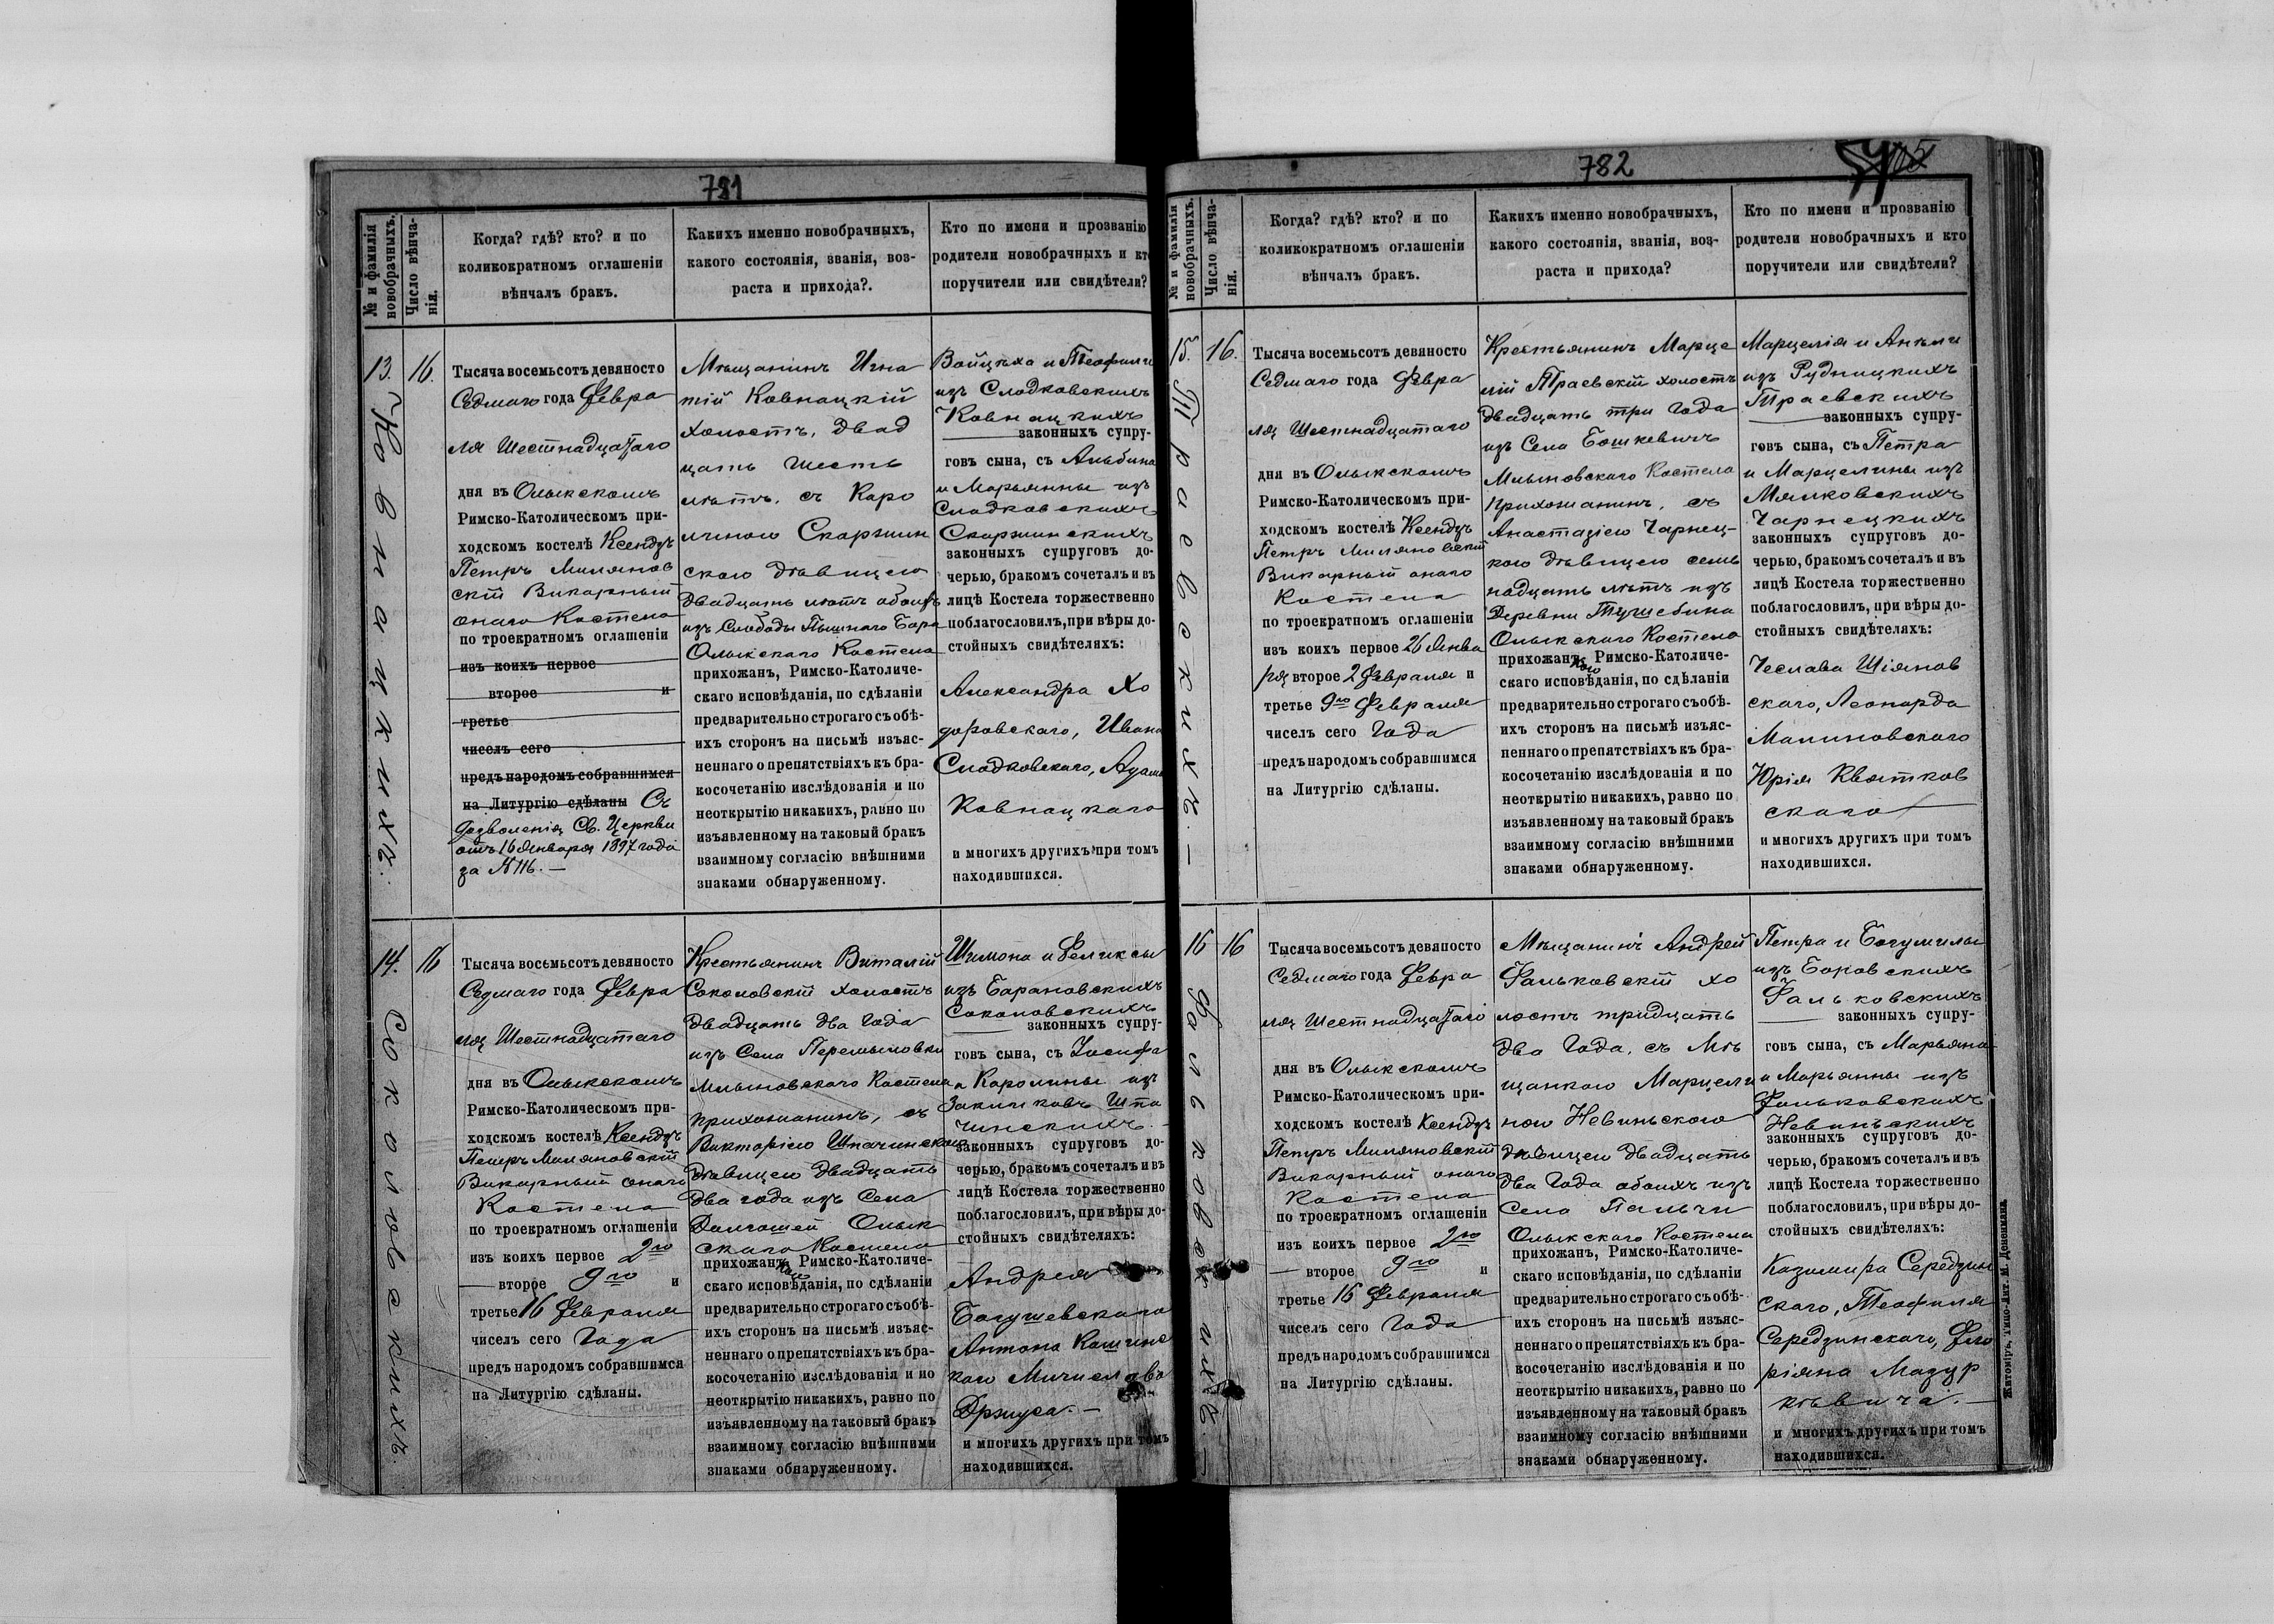 781
№ и фамилія новобрачныхъ.
Число вѣнча-
нія.
Когда? гдѣ? кто? и по
коликократномъ оглашеніи
вѣнчалъ бракъ.
Какихъ именно новобрачныхъ,
какого состоянія, званія, воз-
раста и прихода?.
Кто по имени и прозванію
родители новобрачныхъ и кто
поручители или свидѣтели?
13.
Ковнацкихъ.
16.
Тысяча восемьсотъ девяносто
Седмаго года Февра
ля Шестнадцатаго
дня въ Олыкскомъ
Римско-Католическомъ при-
ходскомъ костелѣ Ксендзъ
Петръ Милянов
скій Викарный
онаго Костела
по троекратномъ оглашеніи
изъ коихъ первое
второе и
третье
чиселъ сего
предъ народомъ собравшимся
на Литургію сдѣланы Съ
дозволенія Св. Церкви
отъ 16 Января 1897 года
за № 116. —
Мѣщанинъ Игна
тій Ковнацкій
холостъ, двад
цать шесть
лѣтъ, съ Каро
линою Скаржин
скою дѣвицею
двадцать лѣтъ обоихъ
изъ Слободы Пышнаго Бора
Олыкскаго Костела
прихожанъ, Римско-Католиче-
скаго исповѣданія, по сдѣланіи
предварительно строгаго съ обѣ-
ихъ сторонъ на письмѣ изъяс-
неннаго о препятствіяхъ къ бра-
косочетанію изслѣдованія и по
неоткрытію никакихъ, равно по
изъявленному на таковый бракъ
взаимному согласію внѣшними
знаками обнаруженному.
Войцѣха и Теофили
изъ Сладковскихъ
Ковнацкихъ
законныхъ супру-
говъ сына, съ Альбина
и Марьянны изъ
Сладковскихъ
Скаржинскихъ
законныхъ супруговъ до-
черью, бракомъ сочеталъ и въ
лицѣ Костела торжественно
поблагословилъ, при вѣры до-
стойныхъ свидѣтеляхъ:
Александра Хо
доровскаго, Ивана
Сладковскаго, Адама
Ковнацкаго
и многихъ другихъ при томъ
находившихся.
14.
Соколовскихъ.
16
Тысяча восемьсотъ девяносто
Седмаго года Февра
ля Шестнадцатаго
дня въ Олыкскомъ
Римско-Католическомъ при-
ходскомъ костелѣ Ксендзъ
Петръ Миляновскій
Викарный онаго
Костела
по троекратномъ оглашеніи
изъ коихъ первое 2го
второе 9го и
третье 16 Февраля
чиселъ сего Года
предъ народомъ собравшимся
на Литургію сдѣланы.
Крестьянинъ Виталій
Соколовскій холостъ
двадцать два года
изъ Села Перемыловки
Млыновскаго Костела
прихожанинъ, съ
Викторіею Шпачинскою
дѣвицею двадцать
два года изъ Села
Долгошей Олык
скаго Костела
прихожанкою Римско-Католиче-
скаго исповѣданія, по сдѣланіи
предварительно строгаго съ обѣ-
ихъ сторонъ на письмѣ изъяс-
неннаго о препятствіяхъ къ бра-
косочетанію изслѣдованія и по
неоткрытію никакихъ, равно по
изъявленному на таковый бракъ
взаимному согласію внѣшними
знаками обнаруженному.
Шимона и Феликсы
изъ Барановскихъ
Соколовскихъ
законныхъ супру-
говъ сына, съ Іосифа
и Каролины изъ
Закликовъ Шпа
чинскихъ. —
законныхъ супруговъ до-
черью, бракомъ сочеталъ и въ
лицѣ Костела торжественно
поблагословилъ, при вѣры до-
стойныхъ свидѣтеляхъ:
Андрея
Богушевскаго
Антона Кашинс
каго Мичислава
и многихъ другихъ при томъ
находившихся.
782
№ и фамилія новобрачныхъ.
Число вѣнча-
нія.
Когда? гдѣ? кто? и по
коликократномъ оглашеніи
вѣнчалъ бракъ.
Какихъ именно новобрачныхъ,
какого состоянія, званія, воз-
раста и прихода?
Кто по имени и прозванію
родители новобрачныхъ и кто
поручители или свидѣтели?
15.
Траевскихъ. —
16.
Тысяча восемьсотъ девяносто
Седмаго года Февра
ля Шестнадцатаго
дня въ Олыкскомъ
Римско-Католическомъ при-
ходскомъ костелѣ Ксендзъ
Петръ Миляновскій
Викарный онаго
Костела
по троекратномъ оглашеніи
изъ коихъ первое 26 Янва
ря второе 2 Февраля и
третье 9го Февраля
чиселъ сего Года
предъ народомъ собравшимся
на Литургію сдѣланы.
Крестьянинъ Марце
лій Траевскій холостъ
двадцать три года
изъ Села Бошкевичъ
Млыновскаго Костела
прихожанинъ, съ
Анастазіею Чарнец-
кою дѣвицею семь
надцать лѣтъ изъ
Деревни Тушебина
Олыкскаго Костела
прихожанкою Римско-Католиче-
скаго исповѣданія, по сдѣланіи
предварительно строгаго съ обѣ-
ихъ сторонъ на письмѣ изъяс-
неннаго о препятствіяхъ къ бра-
косочетанію изслѣдованія и по
неоткрытію никакихъ, равно по
изъявленному на таковый бракъ
взаимному согласію внѣшними
знаками обнаруженному.
Марцелія и Анѣли
изъ Рудницкихъ
Траевскихъ
законныхъ супру-
говъ сына, съ Петра
и Марцелины изъ
Мялковскихъ
Чарнецкихъ
законныхъ супруговъ до-
черью, бракомъ сочеталъ и въ
лицѣ Костела торжественно
поблагословилъ, при вѣры до-
стойныхъ свидѣтеляхъ:
Чеслава Шіянов
скаго, Леонарда
Малиновскаго
Юрія Квятков
скаго
и многихъ другихъ при томъ
находившихся.
16
Фальковскихъ.
16
Тысяча восемьсотъ девяносто
Седмаго года Февра
ля Шестнадцатаго
дня въ Олыкскомъ
Римско-Католическомъ при-
ходскомъ костелѣ Ксендзъ
Петръ Миляновскій
Викарный онаго
Костела
по троекратномъ оглашеніи
изъ коихъ первое 2го
второе 9го и
третье 16 Февраля
чиселъ сего Года
предъ народомъ собравшимся
на Литургію сдѣланы.
Мѣщанинъ Андрей
Фальковскій хо
лостъ тридцать
два года, съ Мѣ
щанкою Марцели
ною Невиньскою
дѣвицею двадцать
два года обоихъ изъ
Села Пальчи
Олыкскаго Костела
прихожанъ, Римско-Католиче-
скаго исповѣданія, по сдѣланіи
предварительно строгаго съ обѣ-
ихъ сторонъ на письмѣ изъяс-
неннаго о препятствіяхъ къ бра-
косочетанію изслѣдованія и по
неоткрытію никакихъ, равно по
изъявленному на таковый бракъ
взаимному согласію внѣшними
знаками обнаруженному.
Петра и Богумилы
изъ Боровскихъ
Фальковскихъ
законныхъ супру-
говъ сына, съ Марьяна
и Марьянны изъ
Фальковскихъ
Невиньскихъ
законныхъ супруговъ до-
черью, бракомъ сочеталъ и въ
лицѣ Костела торжественно
поблагословилъ, при вѣры до-
стойныхъ свидѣтеляхъ:
Казимира Середзин
скаго, Теофиля
Середзинскаго, Фло
ріяна Мазур
кѣвича. —
и многихъ другихъ при томъ
находившихся.
Житоміръ, Типо-Лит. М. Дененмана.